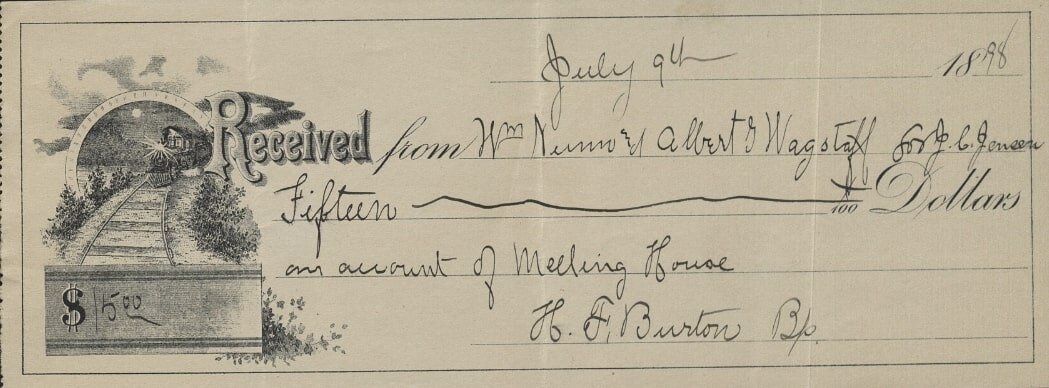 July 9th 1898
Received from Wm Nunn & Albert G Wagstaff for J. C. Jensen
Fifteen /100 Dollars
on account of Meeting House
$ 15.00
H. F. Burton Bp.